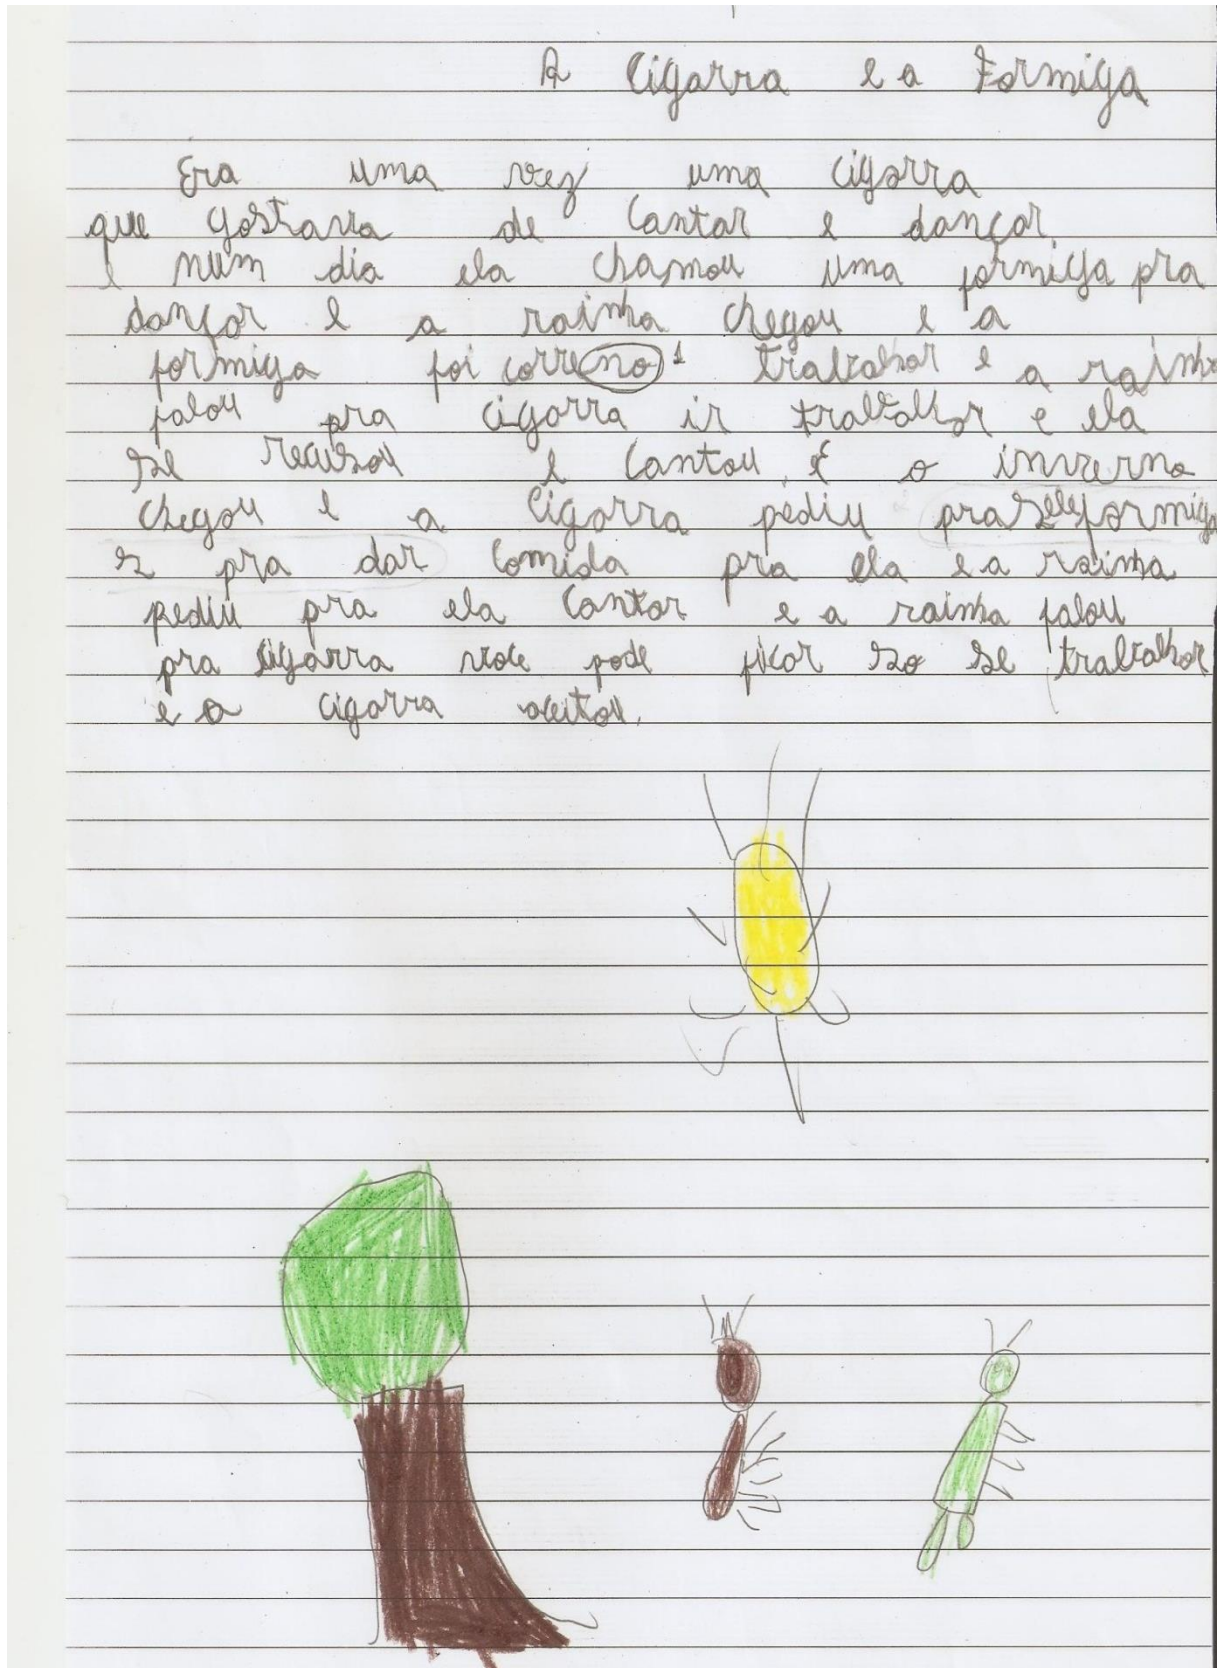 A Cigarra e a Formiga
Era uma vez uma cigarra
que gostava de cantar e dançar.
e num dia ela chamou uma formiga pra
dançar e a rainha chegou e a
formiga foi correno 1 trabalhar e a rainha
falou pra cigarra ir trabalhar e ela
se recusou e cantou. E o inverno
chegou e a cigarra pediu pra formiga
s pra dar comida pra ela e a rainha
pediu pra ela cantar e a rainha falou
pra cigarra voce pode ficar so se trabalhar
e a cigarra aceitou.